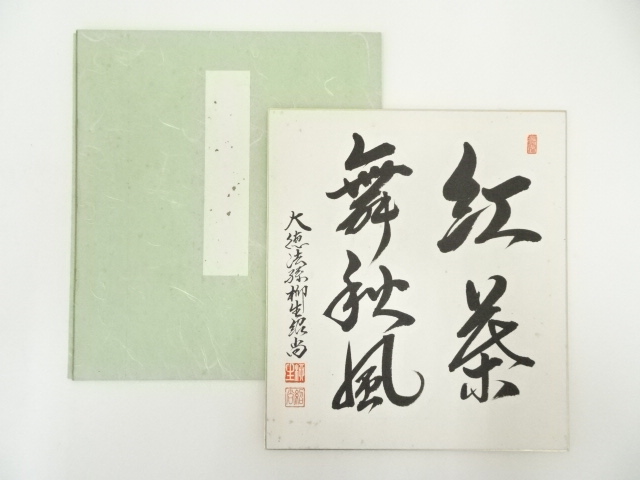 紅葉
舞秋風
大徳法孫柳生紹尚